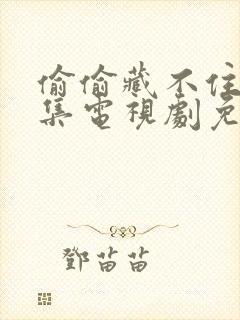 偷偷藏不住
集電視劇免
鄧苗苗